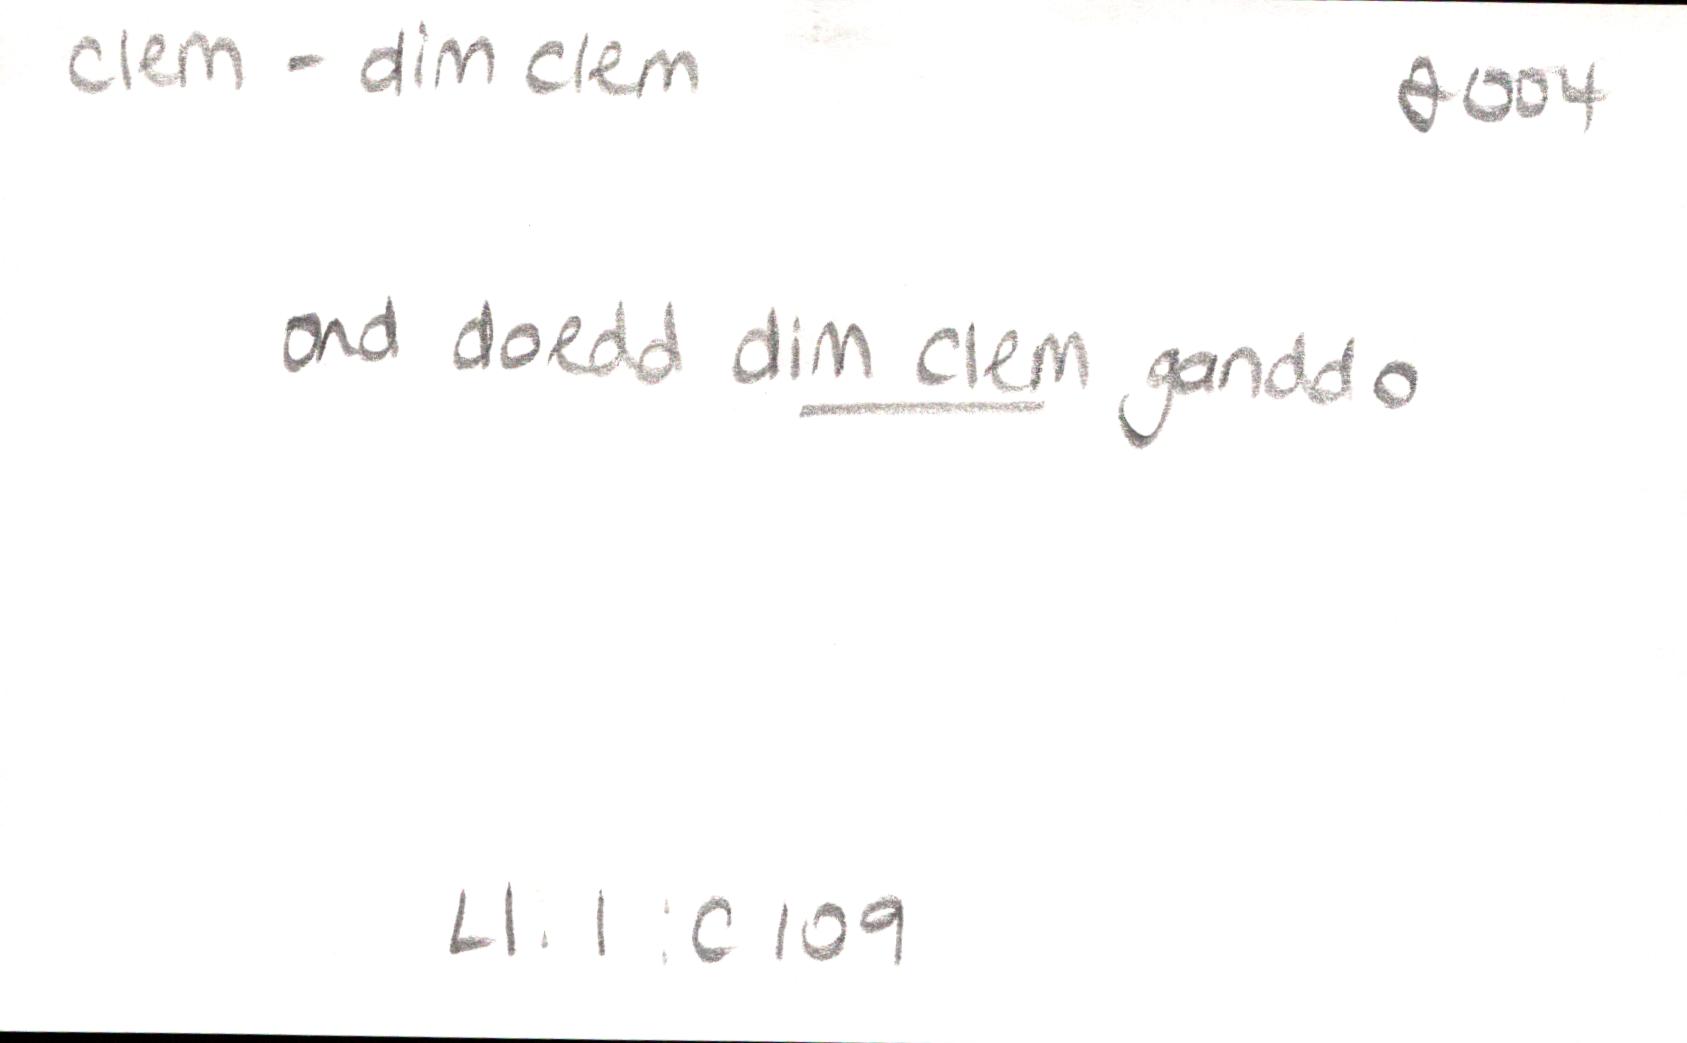 clem - dim clem
ond doedd dim clem ganddo
Ll. 1 : C 109